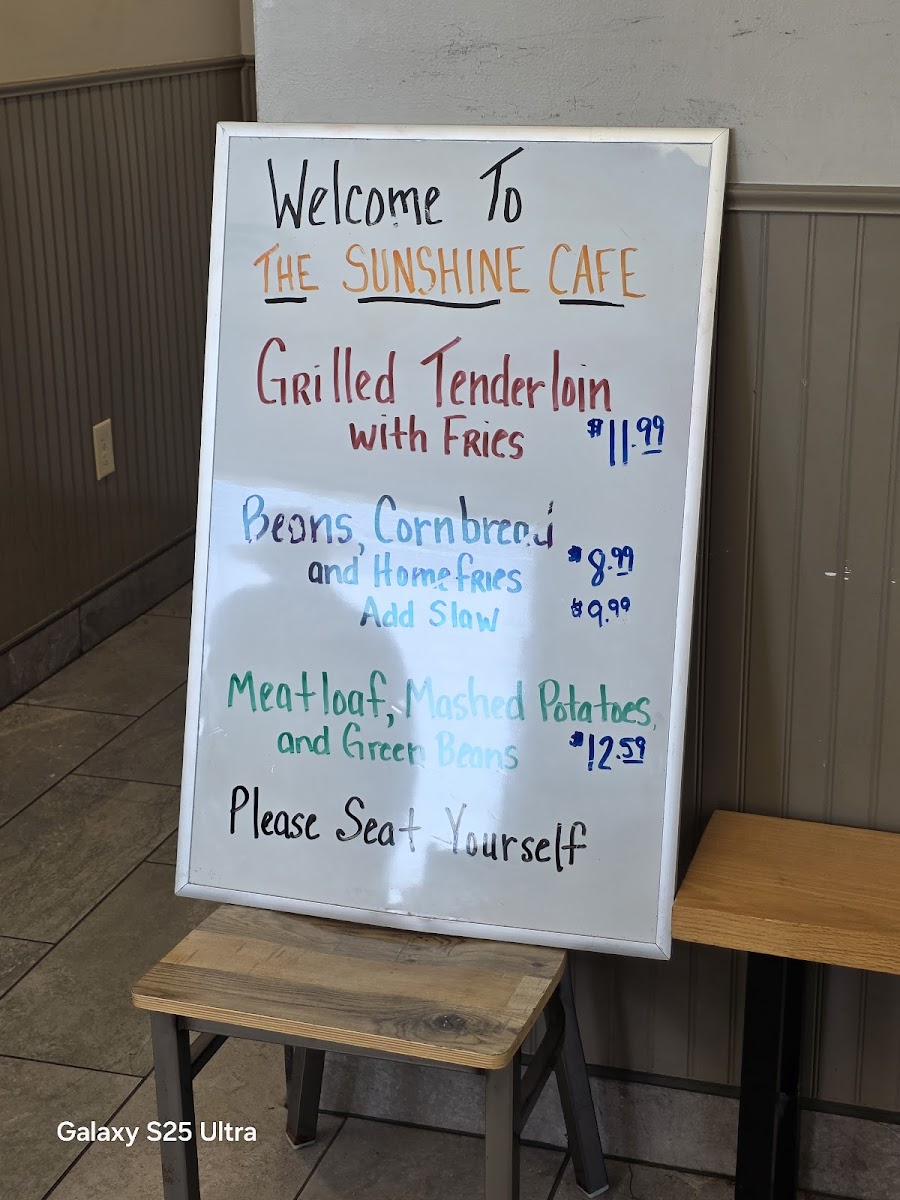 Welcome To
THE SUNSHINE CAFE
Grilled Tenderloin
with Fries $11.99
Beans, Cornbread
and Homefries $8.99
Add Slaw $9.99
Meatloaf, Mashed Potatoes,
and Green Beans $12.59
Please Seat Yourself
Galaxy S25 Ultra